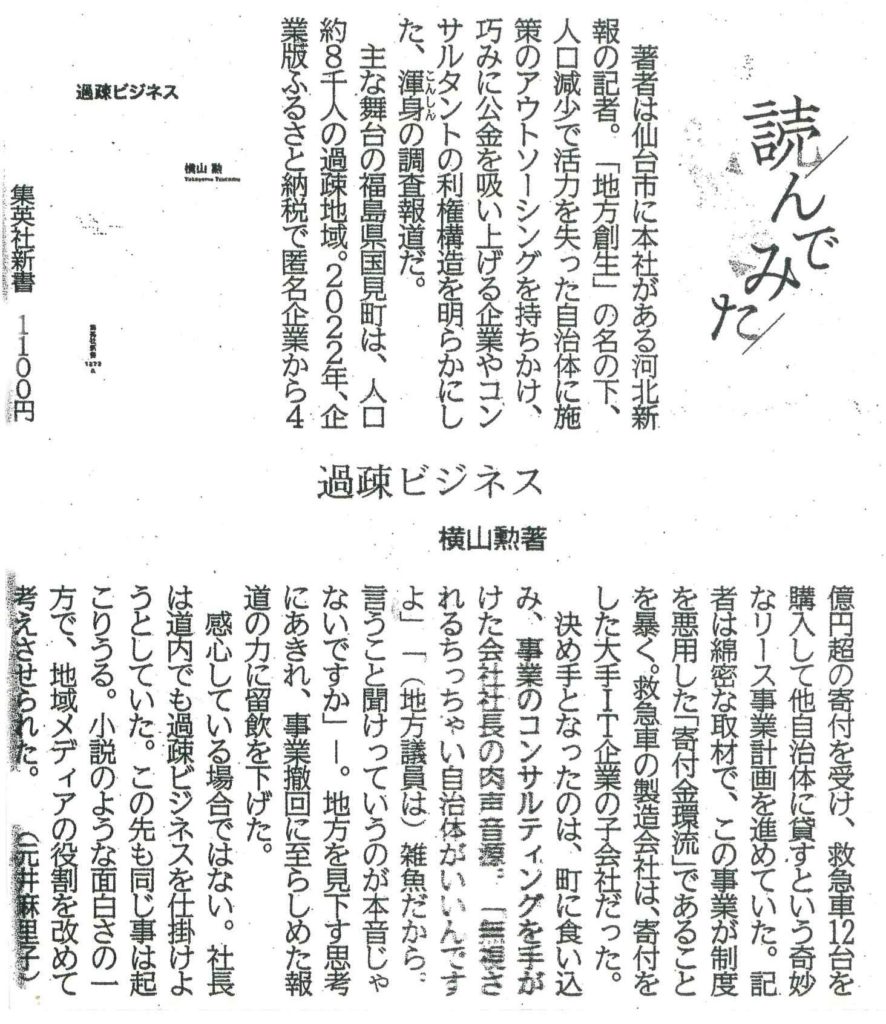 読んでみた
著者は仙台市に本社がある河北新
報の記者。「地方創生」の名の下、
人口減少で活力を失った自治体に施
策のアウトソーシングを持ちかけ、
巧みに公金を吸い上げる企業やコン
サルタントの利権構造を明らかにし
た、渾身の調査報道だ。
こんしん
主な舞台の福島県国見町は、人口
約8千人の過疎地域。2022年、企
業版ふるさと納税で匿名企業から4
過疎ビジネス
横山 勲
Yokoyama Tsutomu
集英社新書
1273
集英社新書 1100円
過疎ビジネス
横山勲著
億円超の寄付を受け、救急車12台を
購入して他自治体に貸すという奇妙
なリース事業計画を進めていた。記
者は綿密な取材で、この事業が制度
を悪用した「寄付金環流」であること
を暴く。救急車の製造会社は、寄付を
した大手IT企業の子会社だった。
決め手となったのは、町に食い込
み、事業のコンサルティングを手が
けた会社社長の肉声音源。「無視さ
れるちっちゃい自治体がいいんです
よ」「(地方議員は)雑魚だから。
言うこと聞けっていうのが本音じゃ
ないですか」―。地方を見下す思考
にあきれ、事業撤回に至らしめた報
道の力に留飲を下げた。
感心している場合ではない。社長
は道内でも過疎ビジネスを仕掛けよ
うとしていた。この先も同じ事は起
こりうる。小説のような面白さの一
方で、地域メディアの役割を改めて
考えさせられた。 (元井麻里子)